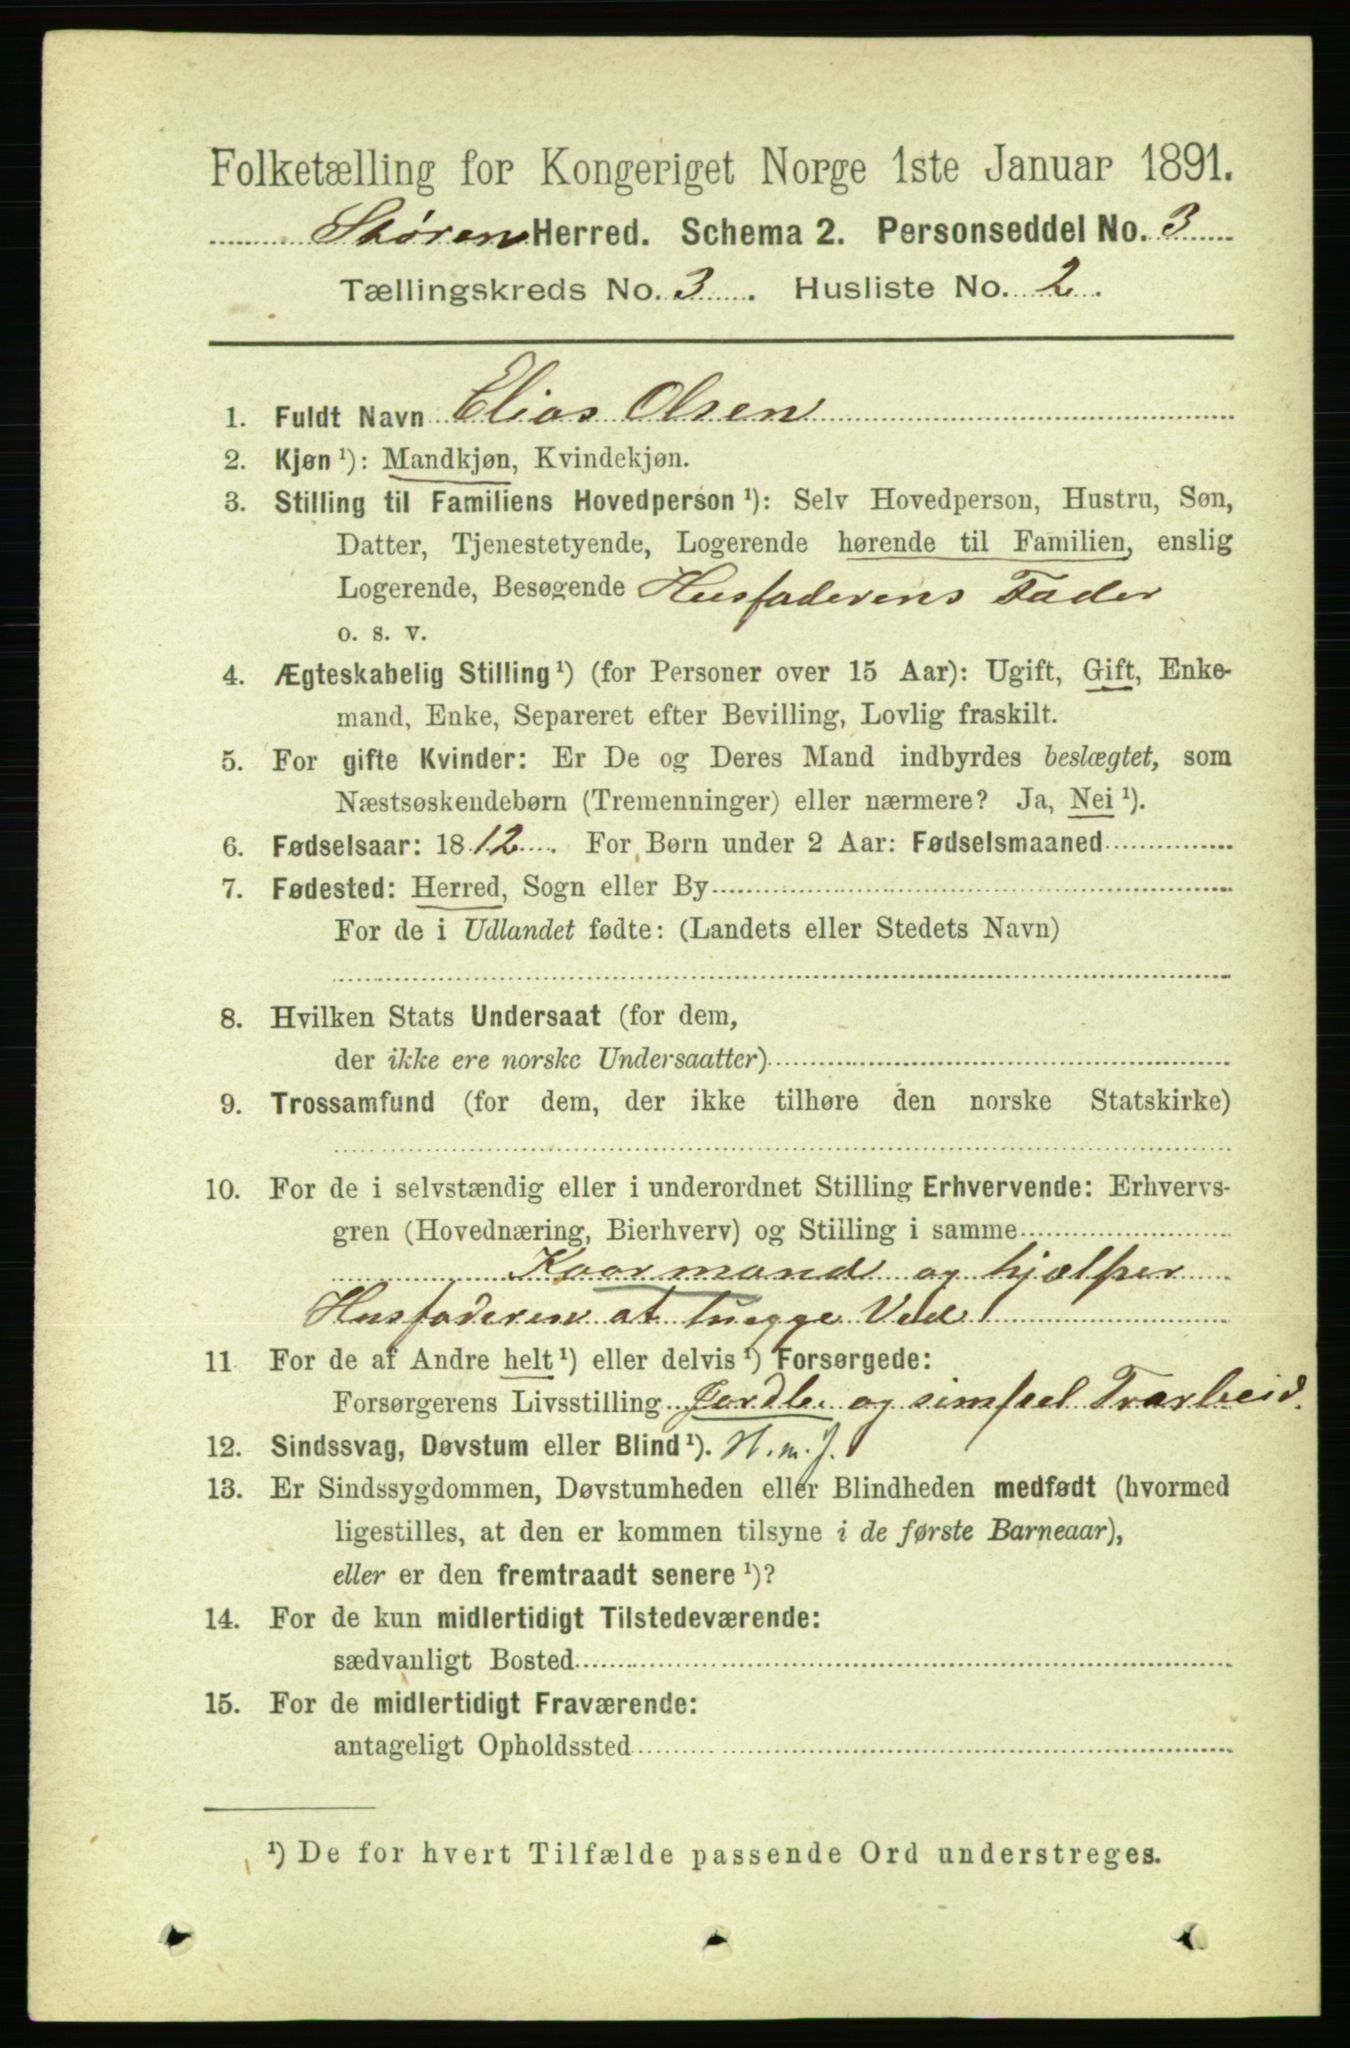 Folketælling for Kongeriget Norge 1ste Januar 1891.
Støren Herred. Schema 2. Personseddel No. 3
Tællingskreds No. 3. Husliste No. 2.
1. Fuldt Navn Elias Olsen
2. Kjøn ¹): Mandkjøn, Kvindekjøn.
3. Stilling til Familiens Hovedperson ¹): Selv Hovedperson, Hustru, Søn,
Datter, Tjenestetyende, Logerende hørende til Familien, enslig
Logerende, Besøgende Husfaderens Fader
o. s. v.
4. Ægteskabelig Stilling ¹) (for Personer over 15 Aar): Ugift, Gift, Enke-
mand, Enke, Separeret efter Bevilling, Lovlig fraskilt.
5. For gifte Kvinder: Er De og Deres Mand indbyrdes beslægtet, som
Næstsøskendebørn (Tremenninger) eller nærmere? Ja, Nei ¹).
6. Fødselsaar: 1812. For Børn under 2 Aar: Fødselsmaaned
7. Fødested: Herred, Sogn eller By
For de i Udlandet fødte: (Landets eller Stedets Navn)
8. Hvilken Stats Undersaat (for dem,
der ikke ere norske Undersaatter)
9. Trossamfund (for dem, der ikke tilhøre den norske Statskirke)
10. For de i selvstændig eller i underordnet Stilling Erhvervende: Erhvervs-
gren (Hovednæring, Bierhverv) og Stilling i samme
Kaarmand og hjælper
Husfaderen at hugge Ved
11 For de af Andre helt ¹) eller delvis ¹) Forsørgede:
Forsørgerens Livsstilling Jordb. og simpel Træarbeid.
12. Sindssvag, Døvstum eller Blind ¹).
13. Er Sindssygdommen, Døvstumheden eller Blindheden medfødt (hvormed
ligestilles, at den er kommen tilsyne i de første Barneaar),
eller er den fremtraadt senere ¹)?
14. For de kun midlertidigt Tilstedeværende:
sædvanligt Bosted
15. For de midlertidigt Fraværende:
antageligt Opholdssted
¹) De for hvert Tilfælde passende Ord understreges.